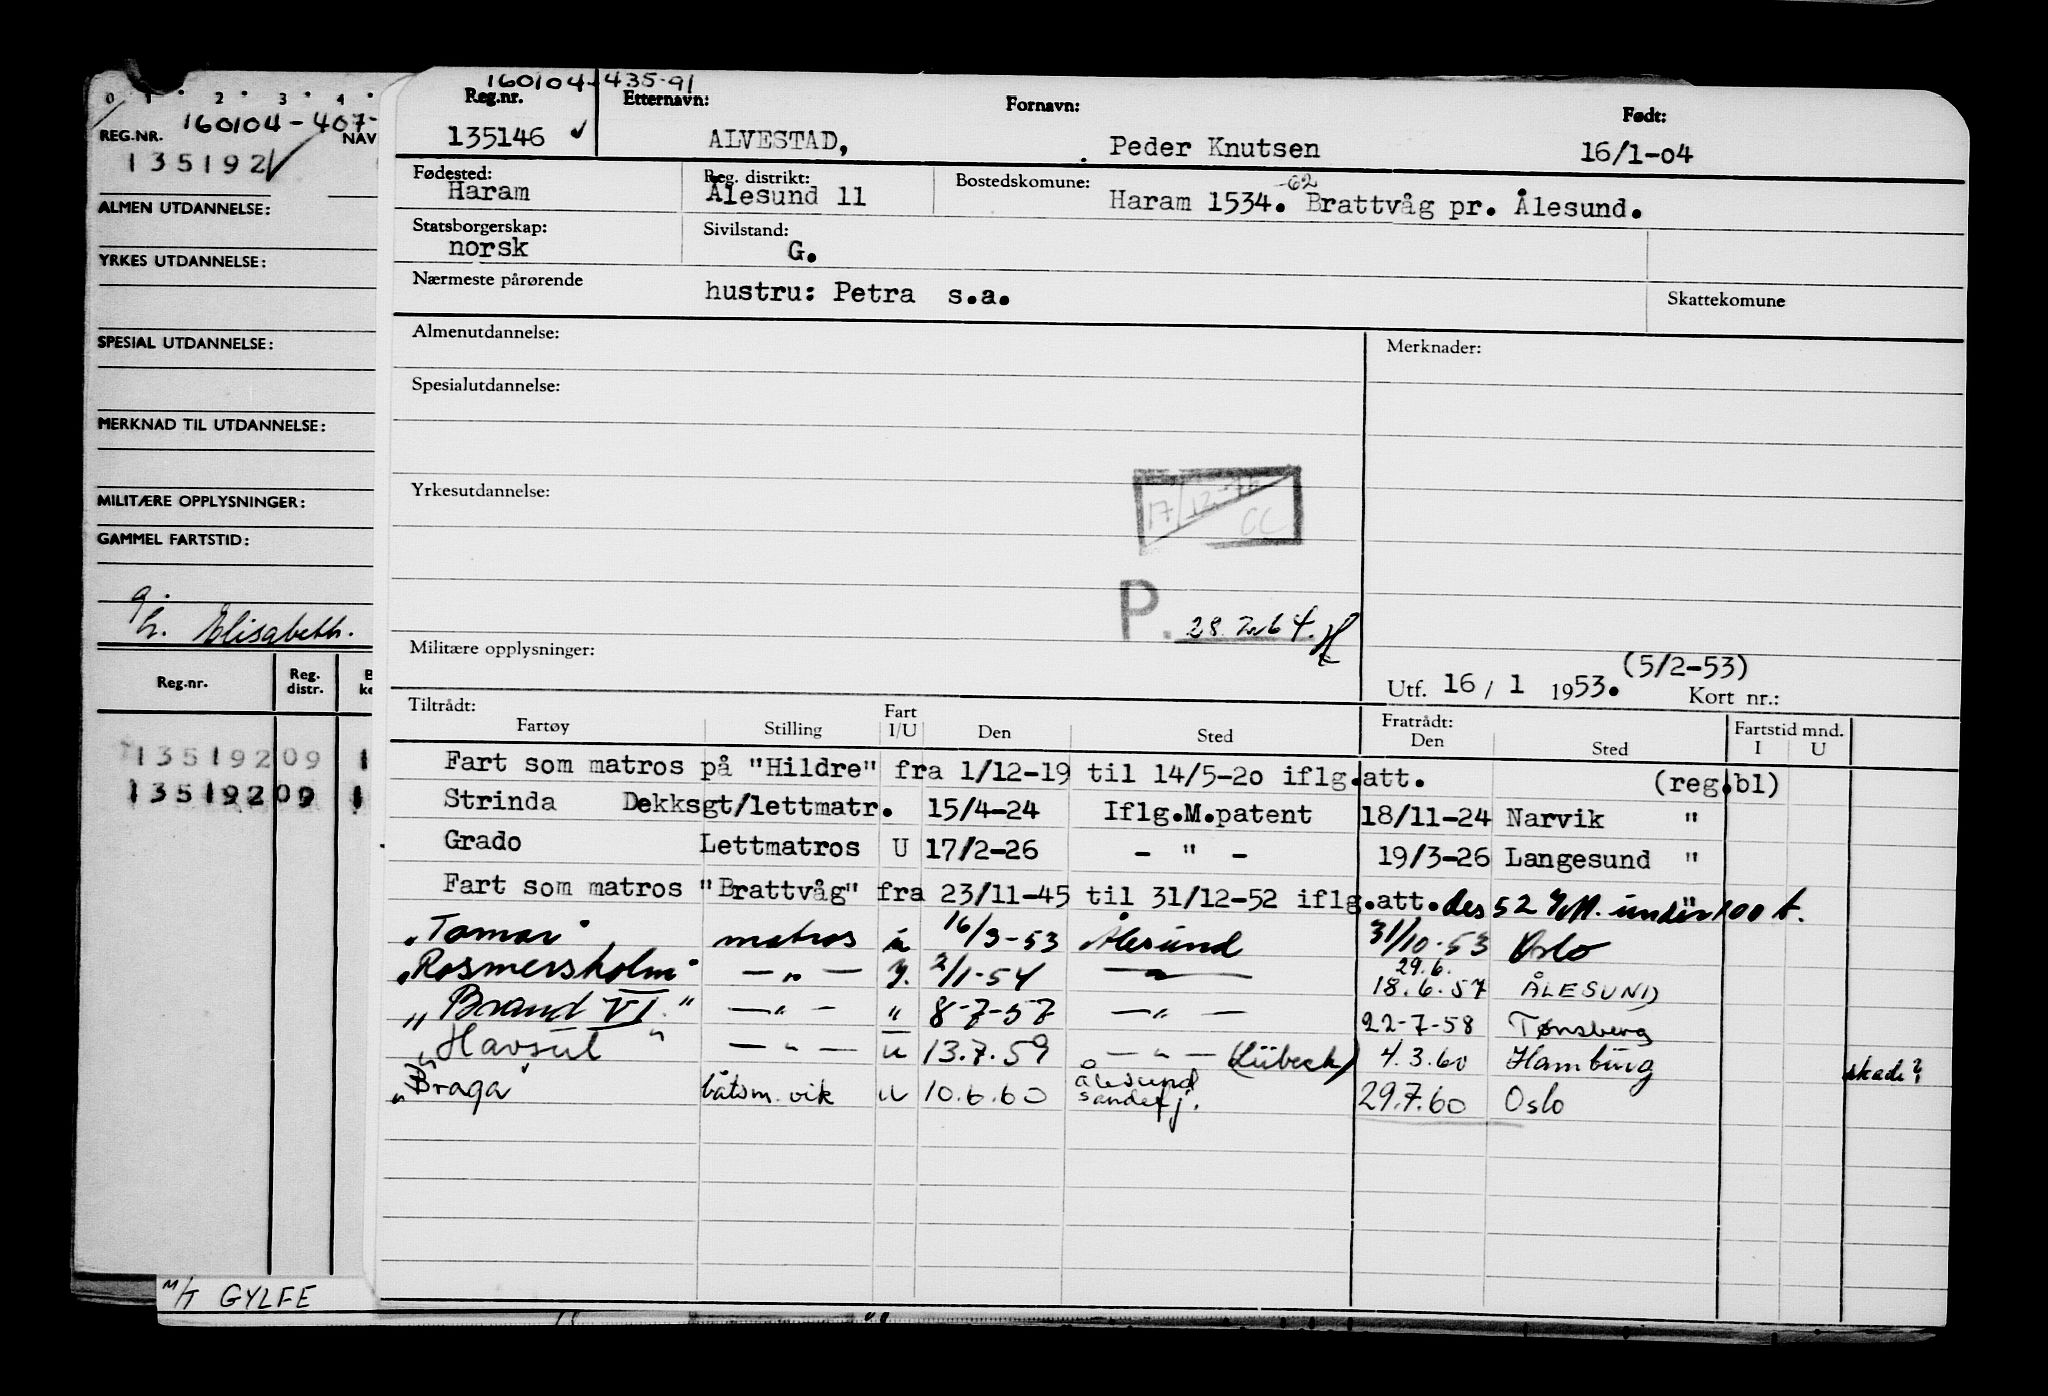 0 1 2 3 4
160104-407-
REG.NR. NAV
135192
ALMEN UTDANNELSE:
YRKES UTDANNELSE:
SPESIAL UTDANNELSE:
MERKNAD TIL UTDANNELSE:
MILITÆRE OPPLYSNINGER:
GAMMEL FARTSTID:
Elisabeth.
Reg.nr. Reg. distr.
135192 09 1
135192 09 1
M/T GYLFE
160104-435-91
Reg.nr. Etternavn: Fornavn: Født:
135146 ALVESTAD, Peder Knutsen 16/1-04
Fødested: Reg. distrikt: Bostedskomune: -62
Haram Ålesund 11 Haram 1534. Brattvåg pr. Ålesund.
Statsborgerskap: Sivilstand:
norsk G.
Nærmeste pårørende hustru: Petra s.a. Skattekomune
Almenutdannelse: Merknader:
Spesialutdannelse:
Yrkesutdannelse:
17/12
CC
P. 28.7.64.
Militære opplysninger:
(5/2-53)
Utf. 16 / 1 1953. Kort nr.:
Tiltrådt: Fart Fratrådt: Fartstid mnd.
Fartøy Stilling I/U Den Sted Den Sted I U
Fart som matros på "Hildre" fra 1/12-19 til 14/5-20 iflg.att. (reg.bl)
Strinda Dekksgt/lettmatr. 15/4-24 Iflg.M.patent 18/11-24 Narvik "
Grado Lettmatros U 17/2-26 - " - 19/3-26 Langesund "
Fart som matros "Brattvåg" fra 23/11-45 til 31/12-52 iflg.att. des 52 under 100 t.
"Tamar" matros u 16/3-53 Ålesund 31/10-53 Oslo
29.6.
"Rosmersholm" - " - 2/1-54 - " - 18.6.57 ÅLESUND
"Brand VI" - " - " 8-7-57 - " - 22-7-58 Tønsberg
"Havsul" - " - u 13.7.59 - " - (Lübeck) 4.3.60 Hamburg skade?
"Braga" båtsm. vik u 10.6.60 Ålesund sandefj. 29.7.60 Oslo